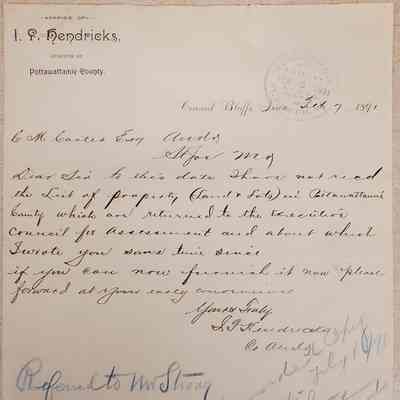 OFFICE OF
I. F. Hendricks,
AUDITOR OF
Pottawattamie County.
Council Bluffs, Iowa, Feb 7 1891
C M Carter Esq Audr
St Joe Mo
Dear Sir To this date I have not recd
the List of property (Land & Lots) in Pottawattamie
County which are returned to the Executive
Council for assessment and about which
I wrote you some time since
if you can now furnish it now please
forward at your early convenience
Yours Truly
I F Hendricks
Co Audr
Referred to Mr Strong